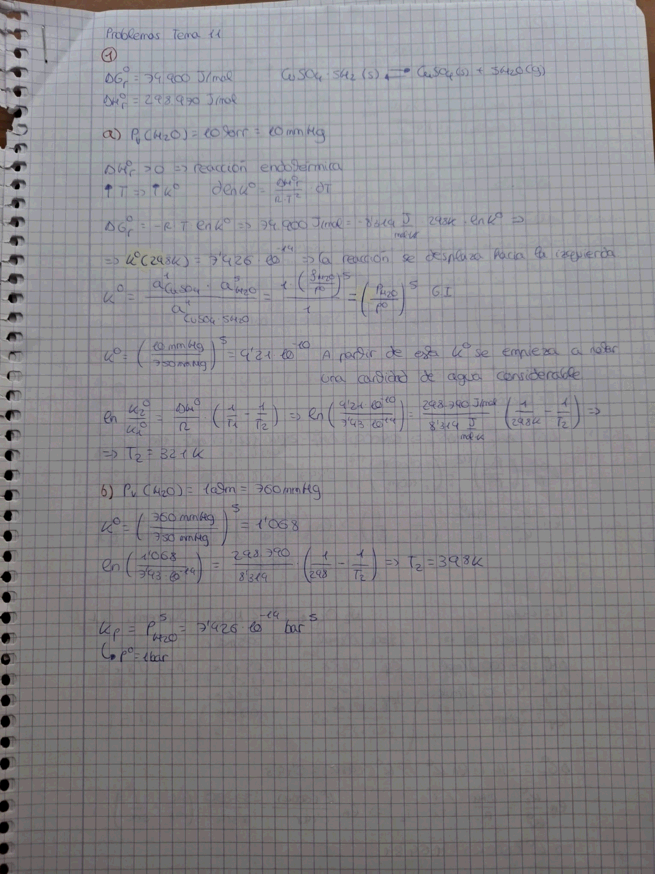 Problemas Tema 11
①
ΔGr⁰ = 74.900 J/mol CuSO4 · 5H2 (s) ⇌ CuSO4(s) + 5H2O(g)
ΔHr⁰ = 298.790 J/mol
a) Pv(H2O) = 10 Torr = 10 mmHg
ΔHr⁰ > 0 ⇒ reacción endotérmica
↑ T ⇒ ↑ K⁰ d ln K⁰ = ΔHr⁰ / R T² dT
ΔGr⁰ = -R T ln K⁰ ⇒ 74.900 J/mol = -8'314 J/mol·K 298K · ln K⁰ ⇒
⇒ K⁰(298K) = 7'426 10⁻¹⁴ ⇒ la reacción se desplaza hacia la izquierda
K⁰ = a CuSO4 · a⁵ H2O / a CuSO4·5H2O = 1 · (PH2O / P⁰)⁵ / 1 = (PH2O / P⁰)⁵ GI
K⁰ = (10 mmHg / 750 mmHg)⁵ = 4'21 10⁻¹⁰ A partir de esta K⁰ se empieza a notar
una cantidad de agua considerable
ln K2⁰/K1⁰ = ΔH⁰/R (1/T1 - 1/T2) ⇒ ln (4'21 10⁻¹⁰ / 7'43 10⁻¹⁴) = 298.790 J/mol / 8'314 J/mol·K (1/298K - 1/T2) ⇒
⇒ T2 = 321 K
b) Pv (H2O) = 1 atm = 760 mmHg
K⁰ = (760 mmHg / 750 mmHg)⁵ = 1'068
ln (1'068 / 7'43 10⁻¹⁴) = 298.790 / 8'314 (1/298 - 1/T2) ⇒ T2 = 398K
Kp = P⁵H2O = 7'426 10⁻¹⁴ bar⁵
↳ P⁰ = 1bar